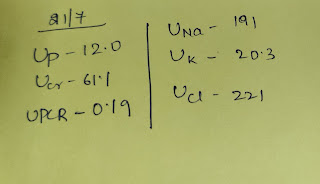 21/7
Up - 12.0
Ucr - 61.1
UPCR - 0.19
UNa - 191
UK - 20.3
Ucl - 221